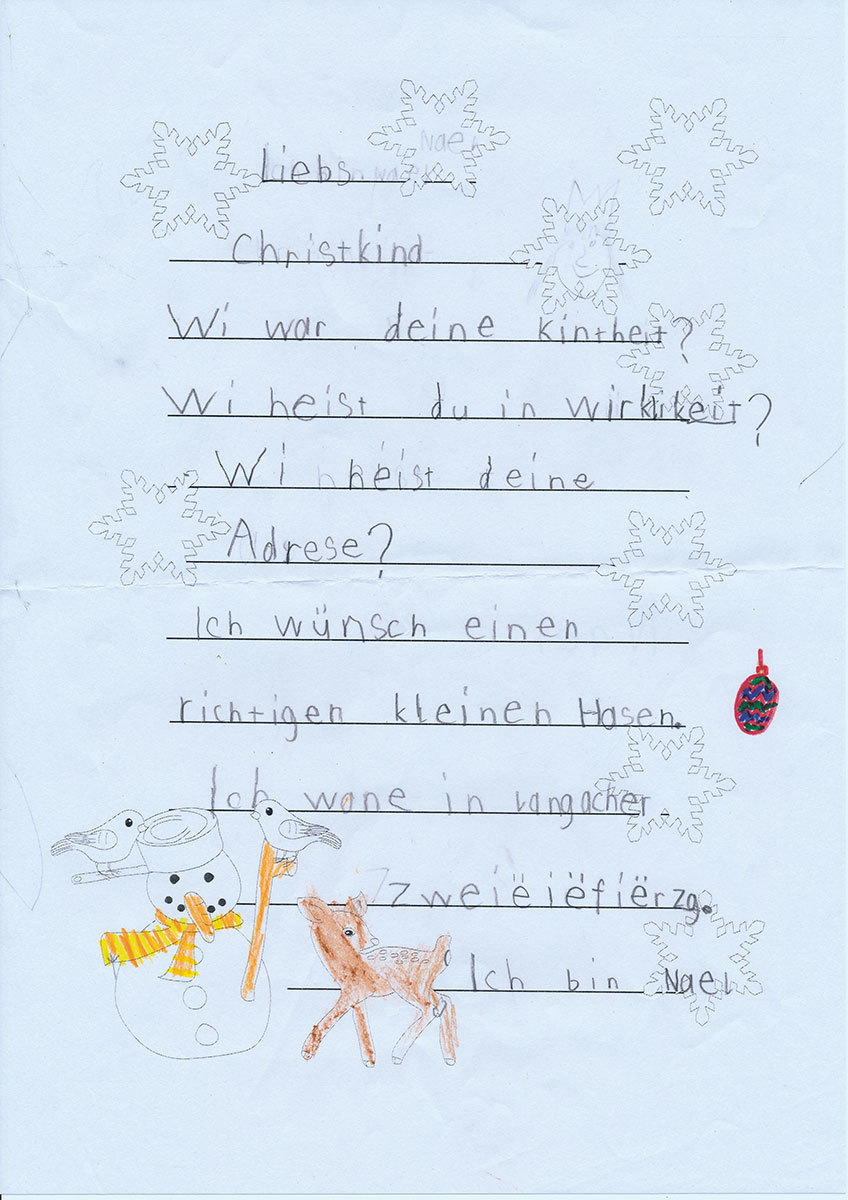 liebs
Christkind
Wi war deine kintheit?
Wi heist du in wirklikeit?
Wi heist deine
Adrese?
Ich wünsch einen
richtigen kleinen Hasen.
Ich wone in langacher
zweiëiëfiërzg.
Ich bin Nael